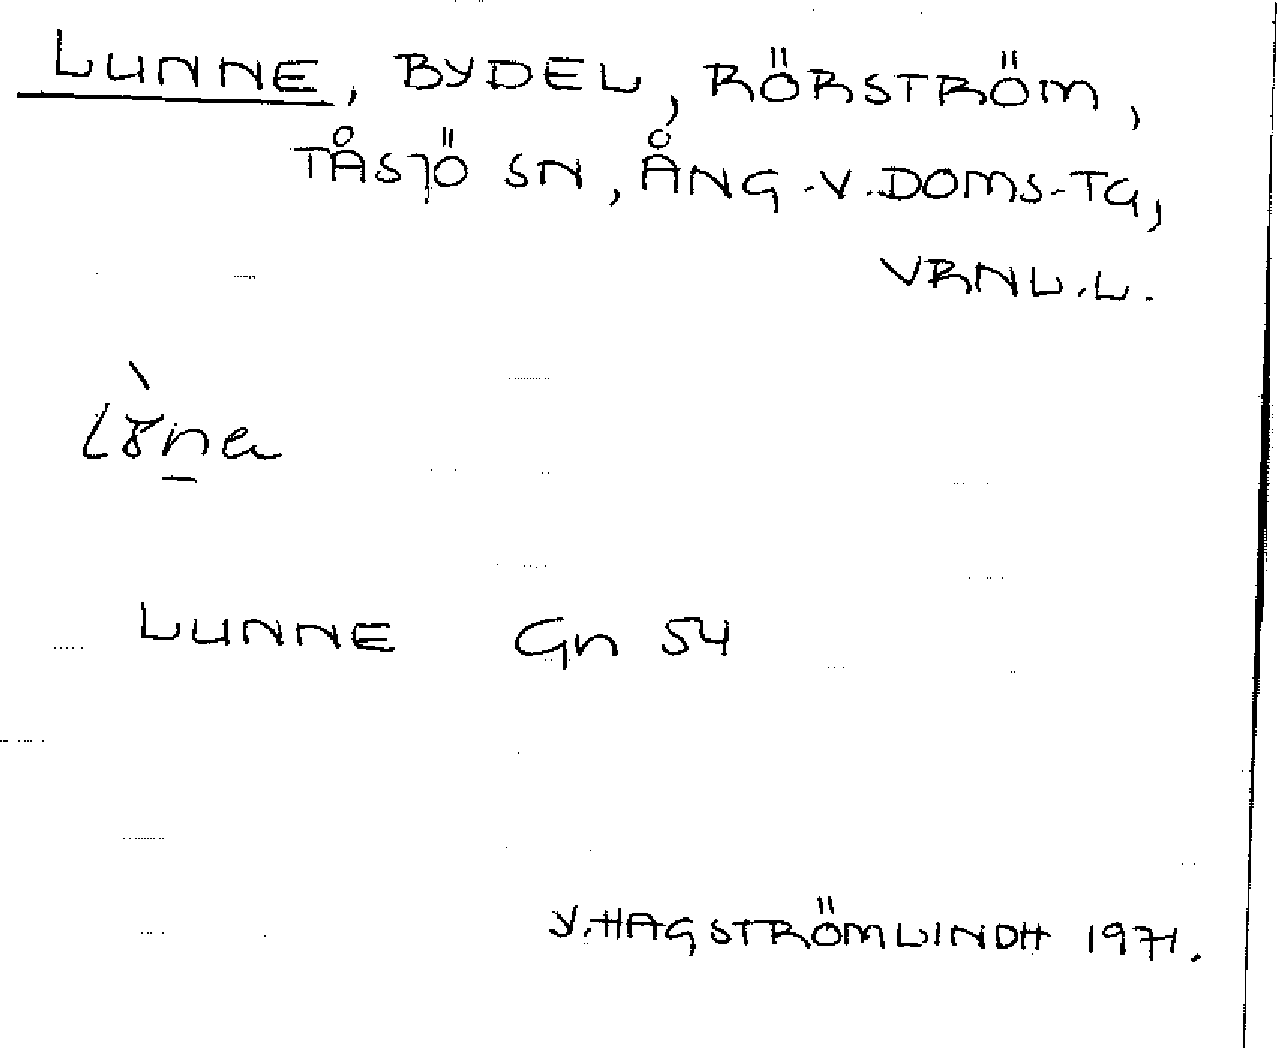 LUNNE, BYDEL, RÖRSTRÖM,
TÅSJÖ SN, ÅNG.V.DOMS-TG,
VRNL.L.
LUNNE Gn 54
Y.HAGSTRÖMLINDH 1971.